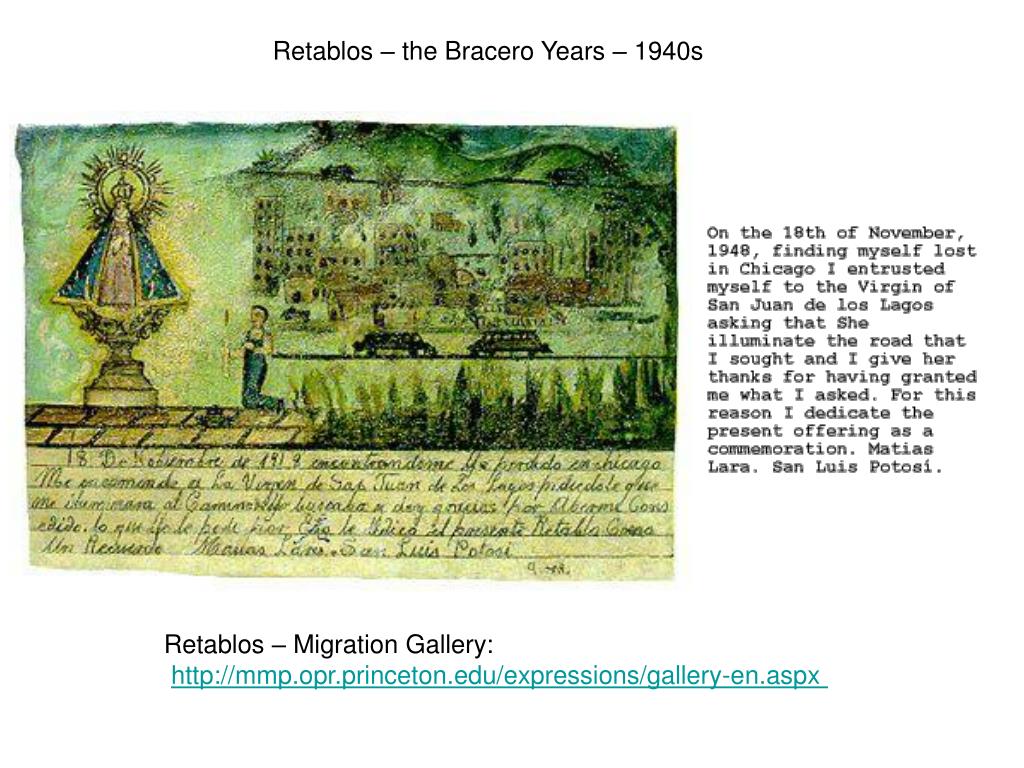 Retablos – the Bracero Years – 1940s
On the 18th of November,
1948, finding myself lost
in Chicago I entrusted
myself to the Virgin of
San Juan de los Lagos
asking that She
illuminate the road that
I sought and I give her
thanks for having granted
me what I asked. For this
reason I dedicate the
present offering as a
commemoration. Matias
Lara. San Luis Potosí.
18 De Nobiembre de encontrandome perdido en chicago
Me encomende a La Virgen de San Juan de Los Lagos pidiendole que
me iluminara el Camino buscaba doy gracias por Aberme Cons
edido lo que le pedi por Esto le Dedico el presente Retablo Como
Un Recuerdo Matias Lara. San Luis Potosi
Retablos – Migration Gallery:
http://mmp.opr.princeton.edu/expressions/gallery-en.aspx